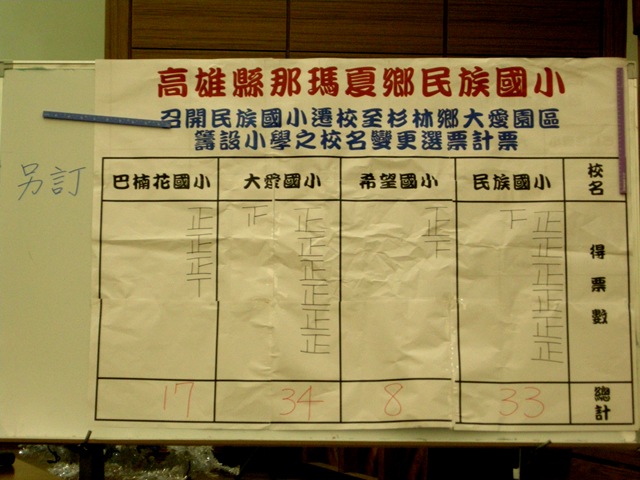 高雄縣那瑪夏鄉民族國小
召開民族國小遷校至杉林鄉大愛園區
籌設小學之校名變更選票計票
另訂
巴楠花國小 大愛國小 希望國小 民族國小 校名
正正正丅 正正正正正正正 正下 正正正正正正下 得票數
17 34 8 33 總計